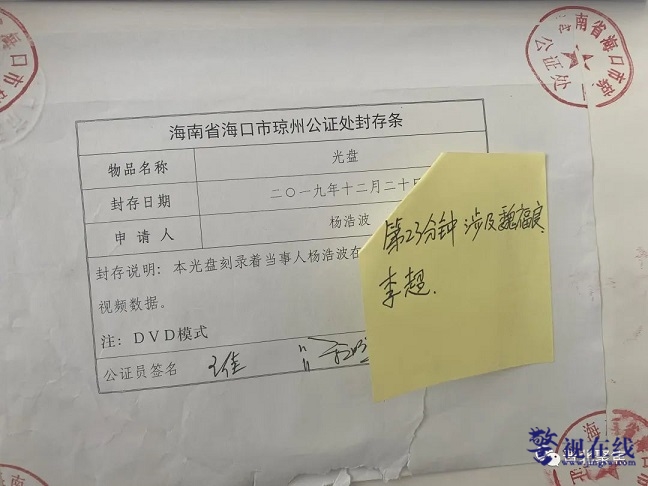 海南省海口市琼州公证处封存条
物品名称 光盘
封存日期 二〇一九年十二月二十日
申请人 杨浩波
封存说明：本光盘刻录着当事人杨浩波在
视频数据。
注：DVD模式
公证员签名 王佳
第23分钟涉及魏福良
李超.
南省海口市琼
公证处
口市琼
海
警视在线
www.jingsw.com